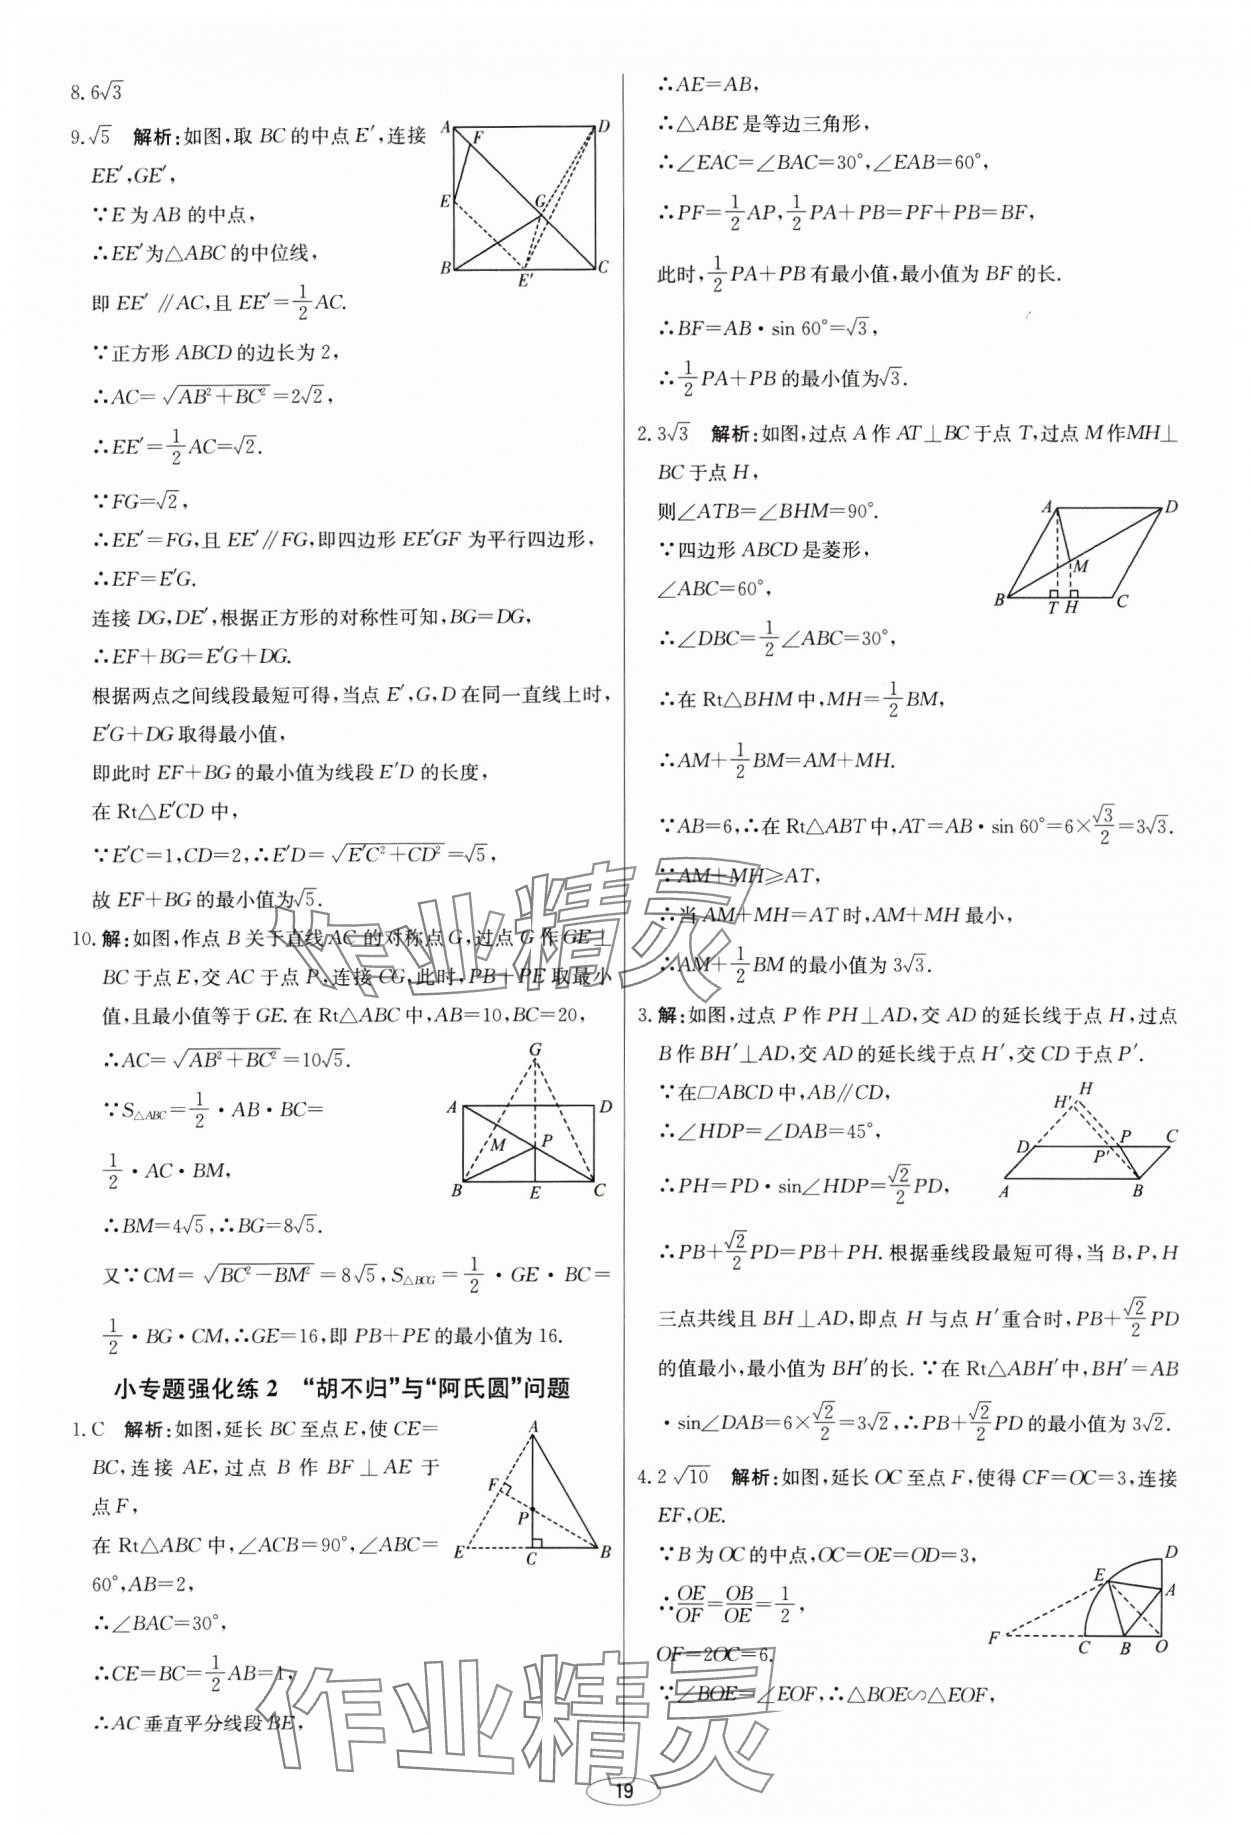 8. 6√3
9. √5　解析：如图，取 BC 的中点 E′，连接
EE′，GE′，
∵E 为 AB 的中点，
∴EE′为△ABC 的中位线，
即 EE′∥AC，且 EE′=1/2 AC.
∵正方形 ABCD 的边长为 2，
∴AC=√(AB²+BC²)=2√2，
∴EE′=1/2 AC=√2.
∵FG=√2，
∴EE′=FG，且 EE′∥FG，即四边形 EE′GF 为平行四边形，
∴EF=E′G.
连接 DG，DE′，根据正方形的对称性可知，BG=DG，
∴EF+BG=E′G+DG.
根据两点之间线段最短可得，当点 E′，G，D 在同一直线上时，
E′G+DG 取得最小值，
即此时 EF+BG 的最小值为线段 E′D 的长度，
在 Rt△E′CD 中，
∵E′C=1，CD=2，∴E′D=√(E′C²+CD²)=√5，
故 EF+BG 的最小值为√5.
A D F E G B E′ C
10. 解：如图，作点 B 关于直线 AC 的对称点 G，过点 G 作 GE⊥
BC 于点 E，交 AC 于点 P，连接 CG，此时，PB+PE 取最小
值，且最小值等于 GE. 在 Rt△ABC 中，AB=10，BC=20，
∴AC=√(AB²+BC²)=10√5.
∵S△ABC=1/2·AB·BC=
1/2·AC·BM，
∴BM=4√5，∴BG=8√5.
又∵CM=√(BC²−BM²)=8√5，S△BCG=1/2·GE·BC=
1/2·BG·CM，∴GE=16，即 PB+PE 的最小值为 16.
G A D M P B E C
小专题强化练 2　“胡不归”与“阿氏圆”问题
1. C　解析：如图，延长 BC 至点 E，使 CE=
BC，连接 AE，过点 B 作 BF⊥AE 于
点 F，
在 Rt△ABC 中，∠ACB=90°，∠ABC=
60°，AB=2，
∴∠BAC=30°，
∴CE=BC=1/2 AB=1，
∴AC 垂直平分线段 BE，
A F P E C B
∴AE=AB，
∴△ABE 是等边三角形，
∴∠EAC=∠BAC=30°，∠EAB=60°，
∴PF=1/2 AP，1/2 PA+PB=PF+PB=BF，
此时，1/2 PA+PB 有最小值，最小值为 BF 的长.
∴BF=AB·sin 60°=√3，
∴1/2 PA+PB 的最小值为√3.
2. 3√3　解析：如图，过点 A 作 AT⊥BC 于点 T，过点 M 作MH⊥
BC 于点 H，
则∠ATB=∠BHM=90°.
∵四边形 ABCD 是菱形，
∠ABC=60°，
∴∠DBC=1/2∠ABC=30°，
∴在 Rt△BHM 中，MH=1/2 BM，
∴AM+1/2 BM=AM+MH.
∵AB=6，∴在 Rt△ABT 中，AT=AB·sin 60°=6×√3/2=3√3.
∵AM+MH≥AT，
∴当 AM+MH=AT 时，AM+MH 最小，
∴AM+1/2 BM 的最小值为 3√3.
A D M B T H C
3. 解：如图，过点 P 作 PH⊥AD，交 AD 的延长线于点 H，过点
B 作 BH′⊥AD，交 AD 的延长线于点 H′，交 CD 于点 P′.
∵在□ABCD 中，AB∥CD，
∴∠HDP=∠DAB=45°，
∴PH=PD·sin∠HDP=√2/2 PD，
∴PB+√2/2 PD=PB+PH. 根据垂线段最短可得，当 B，P，H
三点共线且 BH⊥AD，即点 H 与点 H′重合时，PB+√2/2 PD
的值最小，最小值为 BH′的长. ∵在 Rt△ABH′中，BH′=AB
·sin∠DAB=6×√2/2=3√2，∴PB+√2/2 PD 的最小值为 3√2.
H H′ D P C P′ A B
4. 2√10　解析：如图，延长 OC 至点 F，使得 CF=OC=3，连接
EF，OE.
∵B 为 OC 的中点，OC=OE=OD=3，
∴OE/OF=OB/OE=1/2，
OF=2OC=6.
∵∠BOE=∠EOF，∴△BOE∽△EOF，
D E A F C B O
19
作业精灵
作业精灵